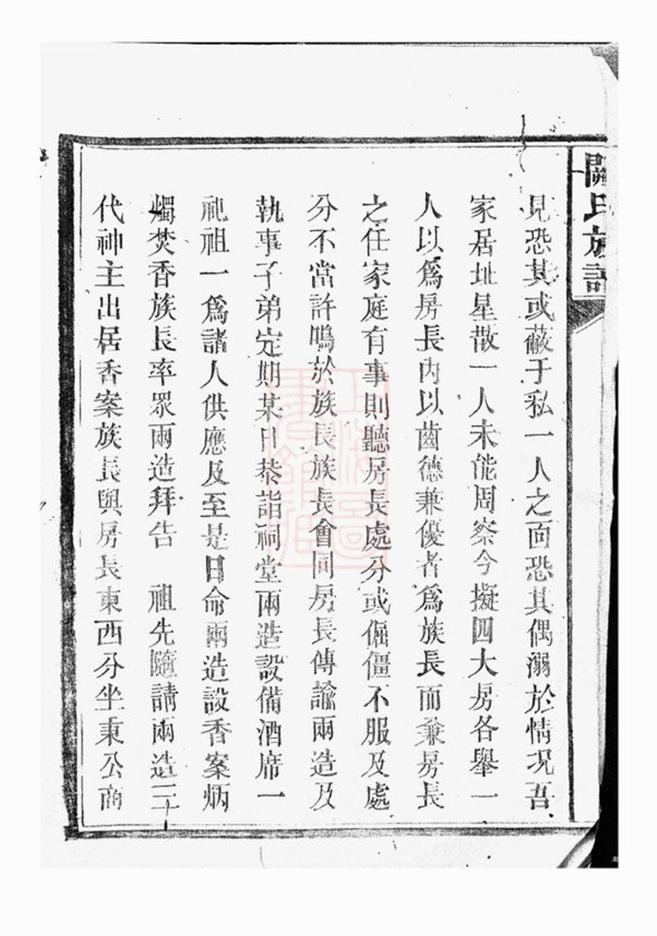 關氏族譜
見恐其或蔽于私一人之面恐其偶溺於情況吾
家居址星散一人未能周察今擬四大房各舉一
人以爲房長內以齒德兼優者爲族長而兼房長
之任家庭有事則聽房長處分或倔僵不服及處
分不當許鳴於族長族長會同房長傳諭兩造及
執事子弟定期某日恭詣祠堂兩造設備酒席一
祀祖一爲諸人供應及至是日命兩造設香案炳
燭焚香族長率眾兩造拜告　祖先隨請兩造三
代神主出居香案族長與房長東西分坐秉公商